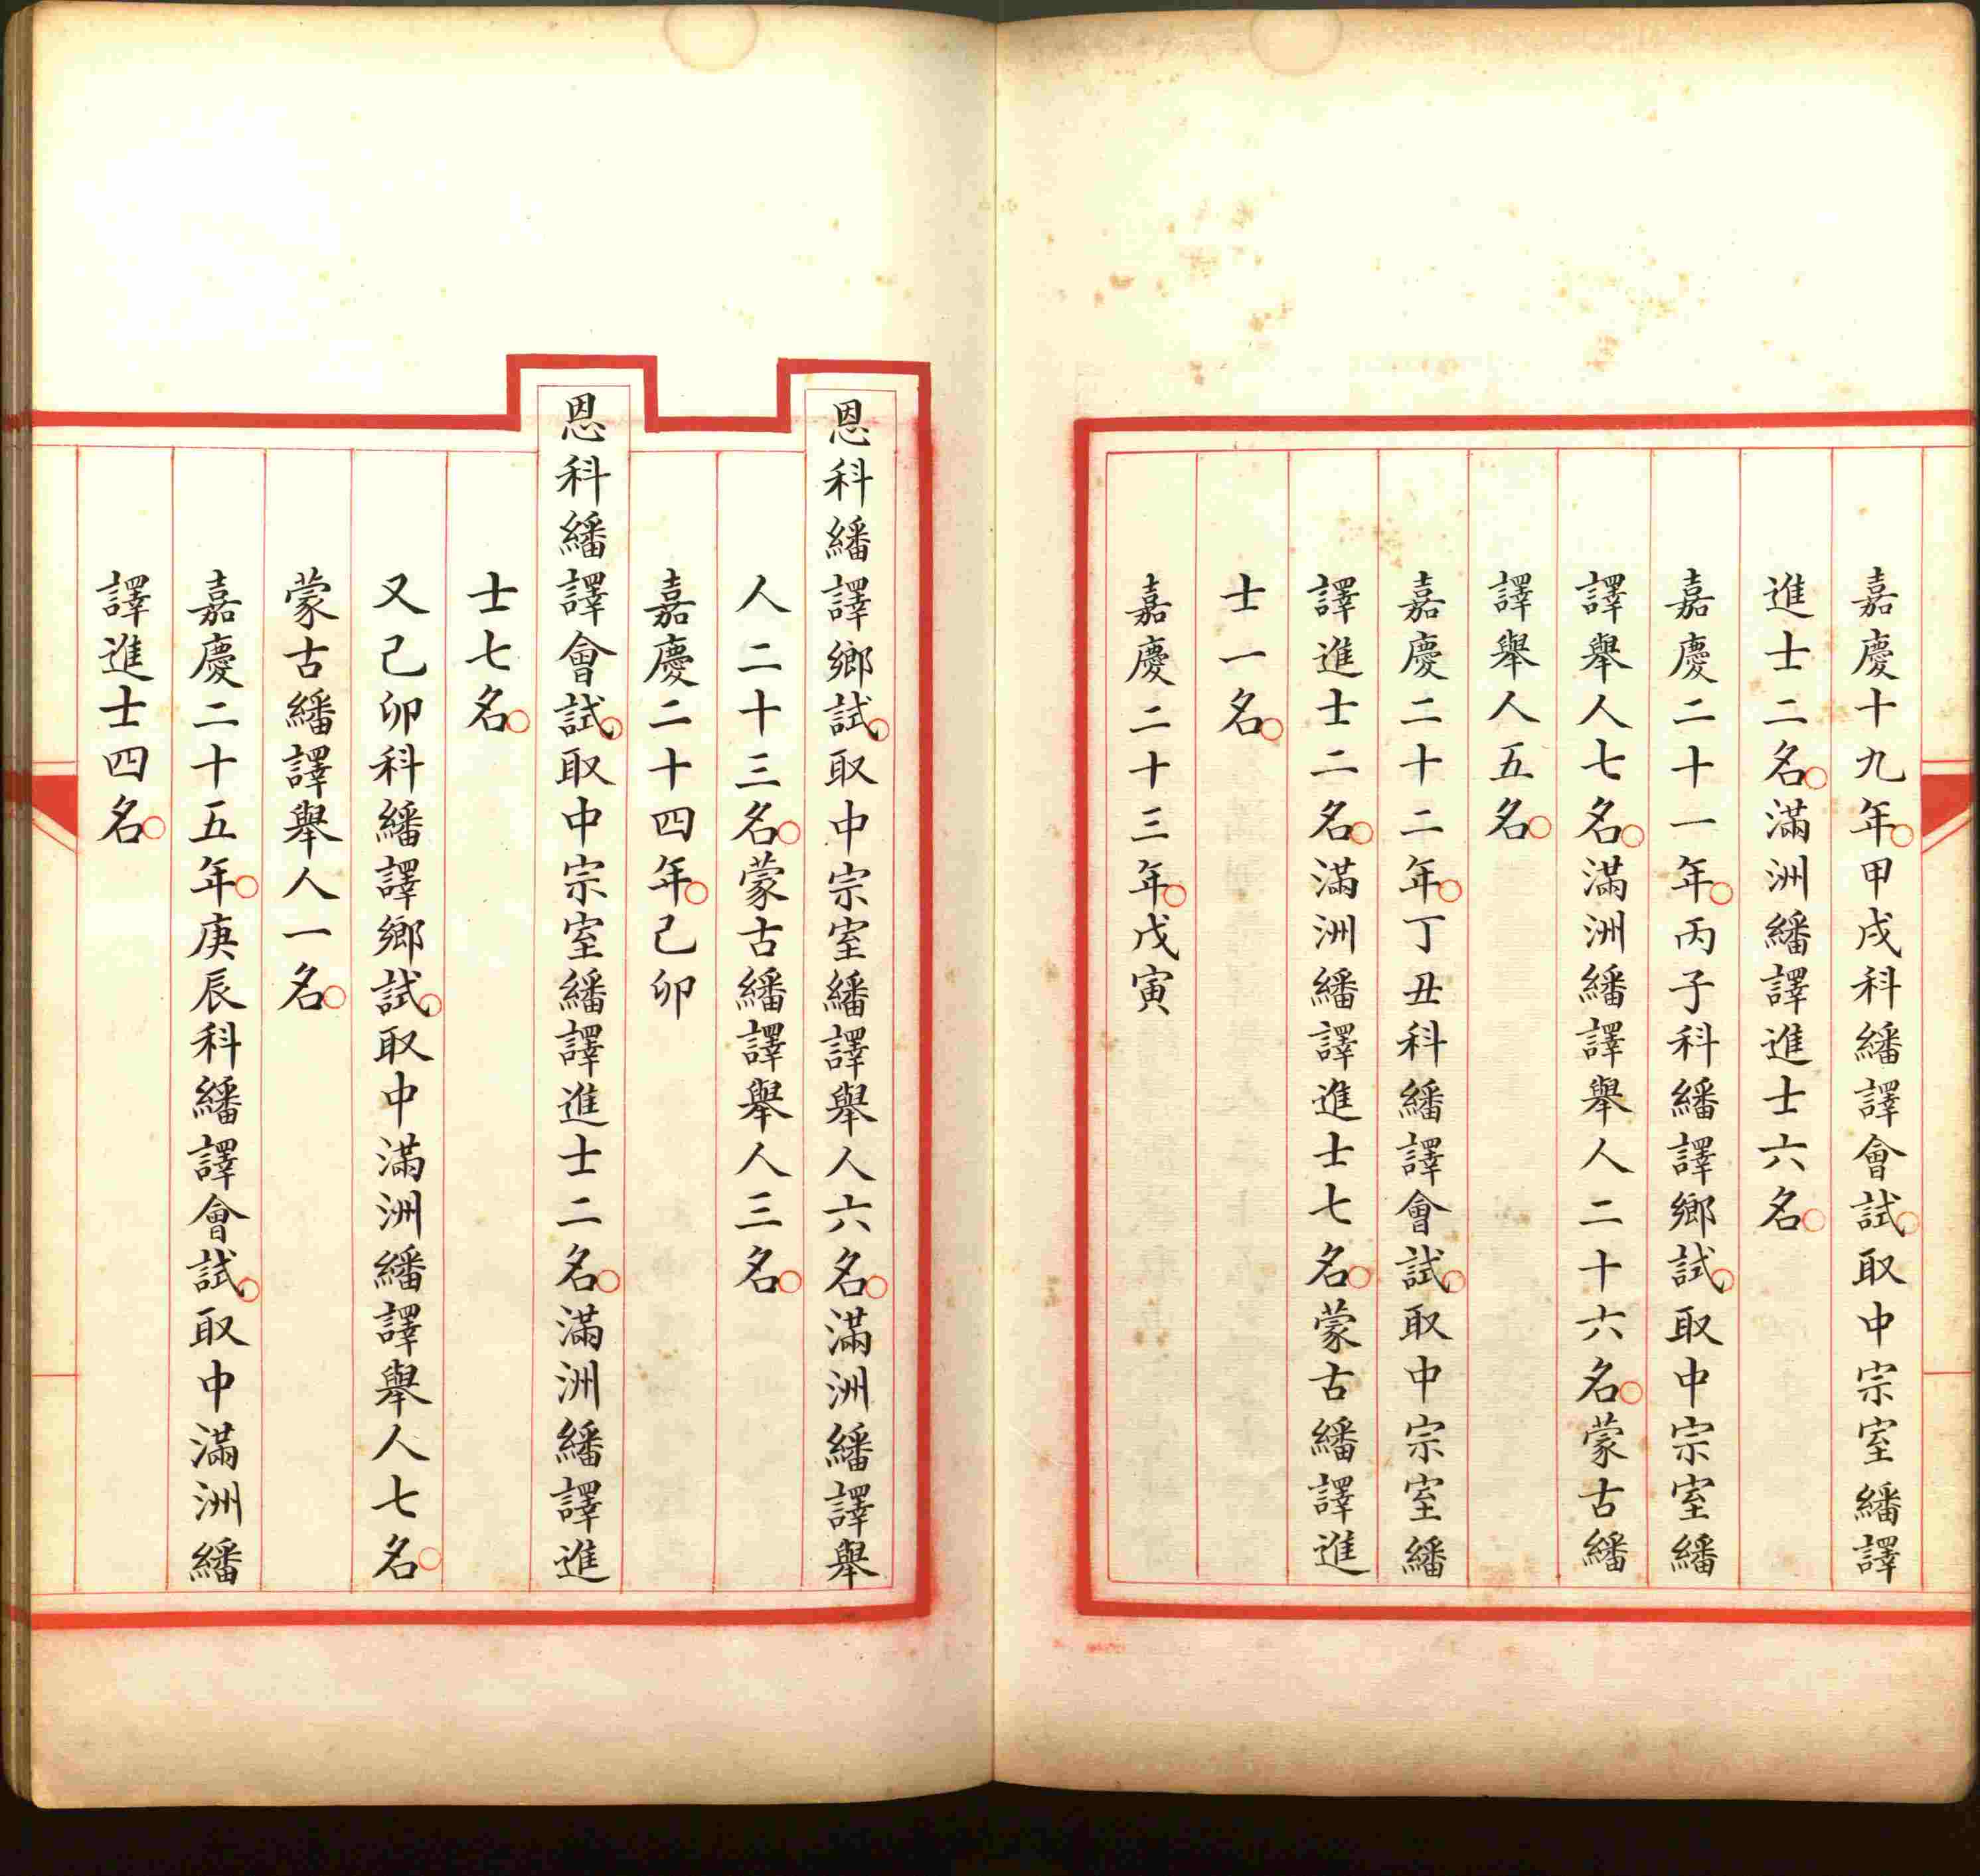 嘉慶十九年○甲戌科繙譯會試○取中宗室繙譯
進士二名○滿洲繙譯進士六名○
嘉慶二十一年○丙子科繙譯鄉試○取中宗室繙
譯舉人七名○滿洲繙譯舉人二十六名○蒙古繙
譯舉人五名○
嘉慶二十二年○丁丑科繙譯會試○取中宗室繙
譯進士二名○滿洲繙譯進士七名○蒙古繙譯進
士一名○
嘉慶二十三年○戊寅
恩科繙譯鄉試○取中宗室繙譯舉人六名○滿洲繙譯舉
人二十三名○蒙古繙譯舉人三名○
嘉慶二十四年○己卯
恩科繙譯會試○取中宗室繙譯進士二名○滿洲繙譯進
士七名○
又己卯科繙譯鄉試○取中滿洲繙譯舉人七名○
蒙古繙譯舉人一名○
嘉慶二十五年○庚辰科繙譯會試○取中滿洲繙
譯進士四名○